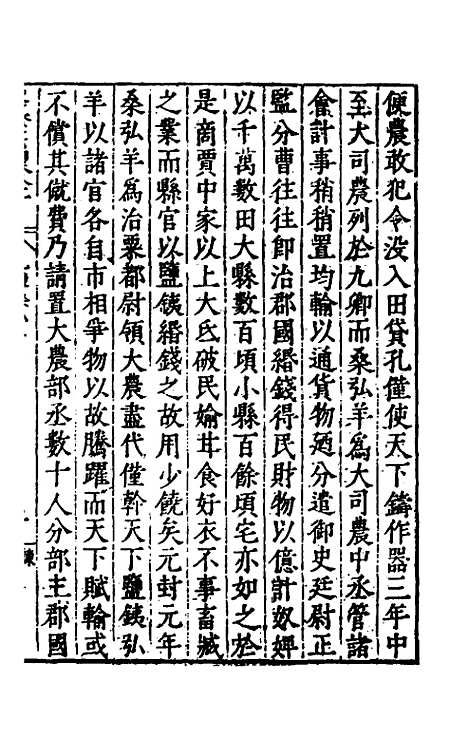 便農敢犯令没入田貸孔僅使天下鑄作器三年中
至大司農列於九卿而桑弘羊爲大司農中丞管諸
會計事稍稍置均輸以通貨物廼分遣御史廷尉正
監分曹往往即治郡國緡錢得民財物以億計奴婢
以千萬數田大縣數百頃小縣百餘頃宅亦如之於
是商賈中家以上大氐破民媮甘食好衣不事畜臧
之業而縣官以鹽鐵緡錢之故用少饒矣元封元年
桑弘羊爲治粟都尉領大農盡代僅斡天下鹽鐵弘
羊以諸官各自市相爭物以故騰躍而天下賦輸或
不償其僦費乃請置大農部丞數十人分部主郡國